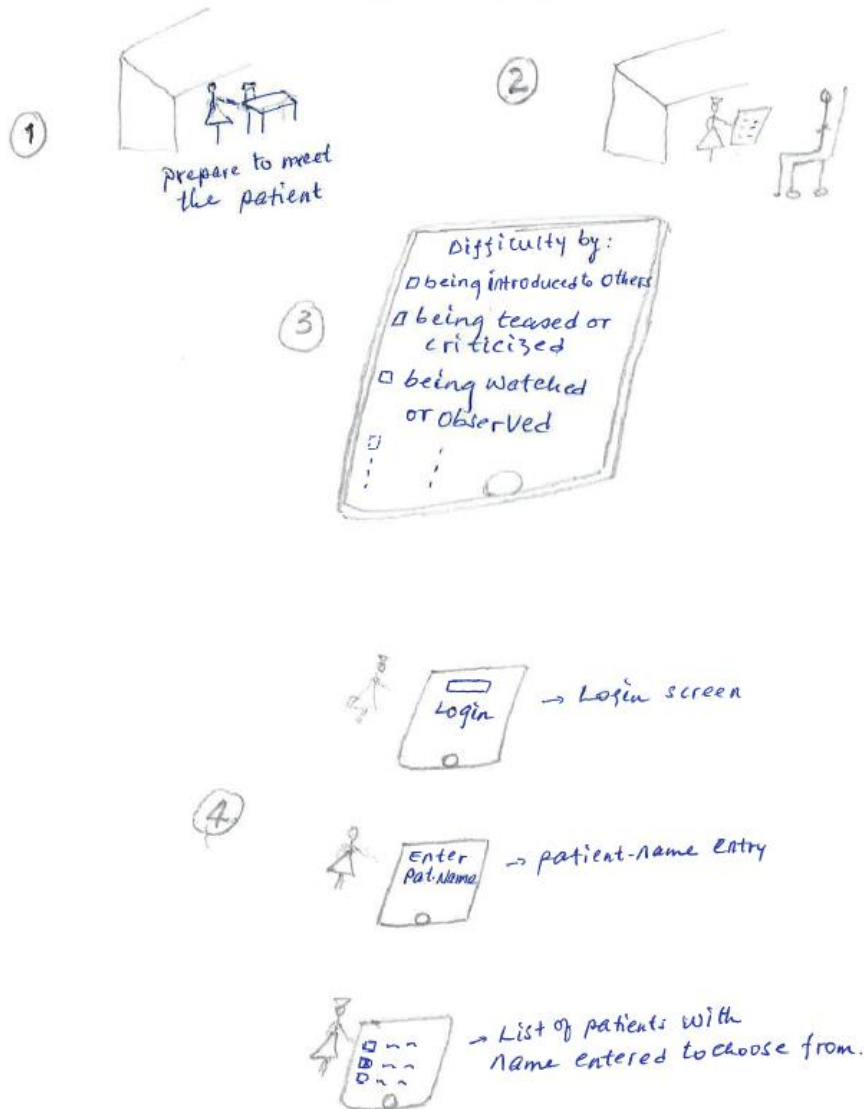 1
prepare to meet
the patient
2
3
Difficulty by:
being introduced to others
being teased or
criticized
being watched
or observed
4
Login
→ Login screen
Enter
Pat.Name
→ patient-name entry
→ List of patients with
name entered to choose from.